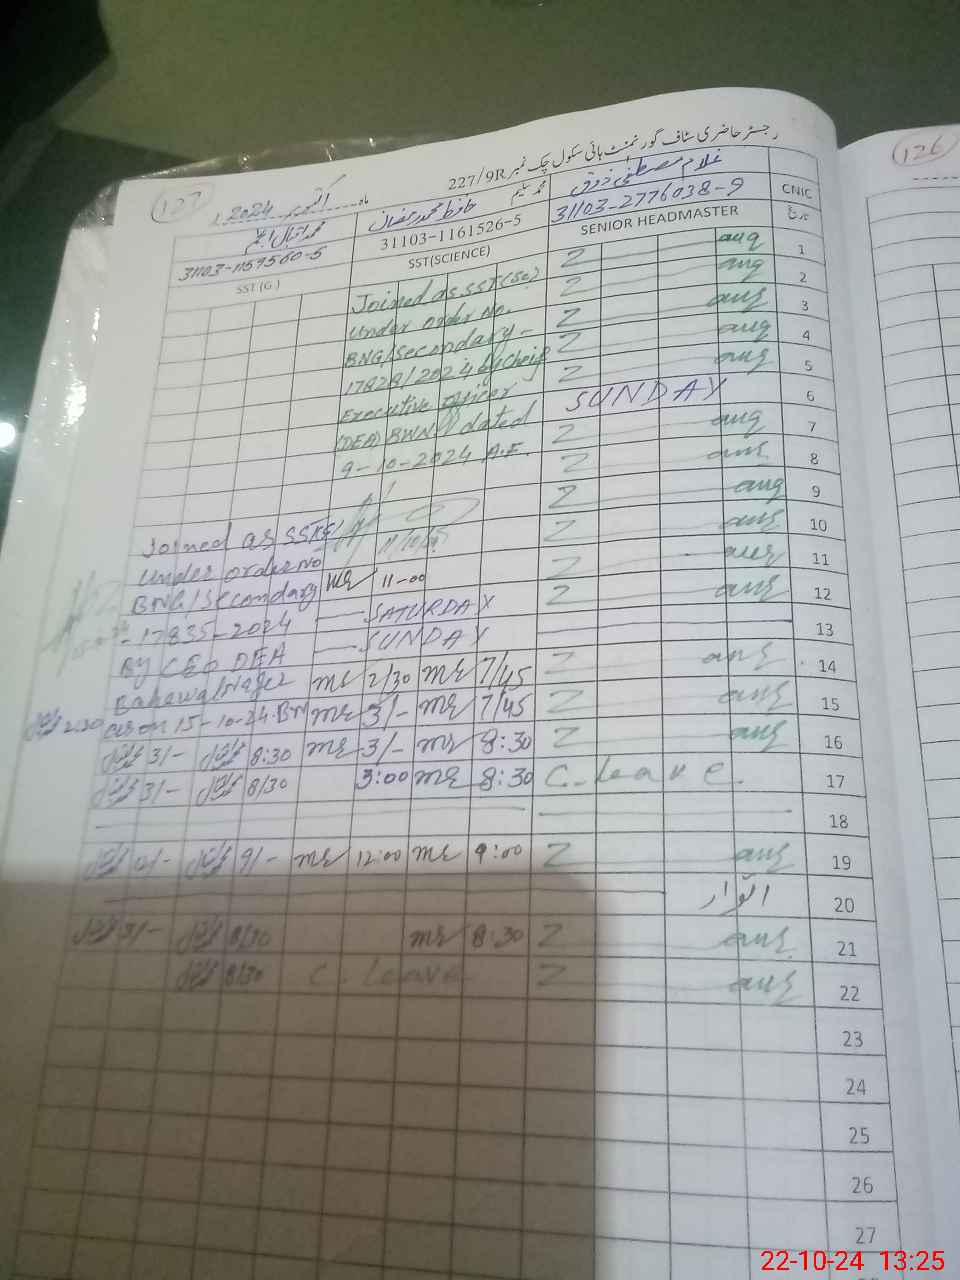 127
126
رجسٹر حاضری سٹاف گورنمنٹ ہائی سکول چک نمبر 227/9R
ماہ اکتوبر 2024
CNIC
تاریخ
غلام مصطفٰی
31103-2776038-9
SENIOR HEADMASTER
حافظ محمد رمضان
31103-1161526-5
SST(SCIENCE)
محمد اقبال
31103-1159560-5
SST (G)
Joined as SST(Sc)
under order No.
BNG/Secondary -
17828/2024 by Cheif
Executive officer
(DEA) BWN dated
9-10-2024 A.F.
Joined as SST(G)
under order No
BNG/Secondary
- 17835-2024
By CEO DEA
Bahawalnager
as on 15-10-24.
1
2
3
4
5
6 SUNDAY
7
8
9
10
11
11-00
12 SATURDAY
13 SUNDAY
14 7/45 2/30
15 7/45 3/- 2:30
16 8:30 3/- 8:30 3/-
17 C. leave. 8:30 3:00 8/30 3/-
18
19 9:00 12:00 9/- 12/-
20 اتوار
21 8:30 8/30 3/-
22 C. leave 8/30
23
24
25
26
27
22-10-24 13:25